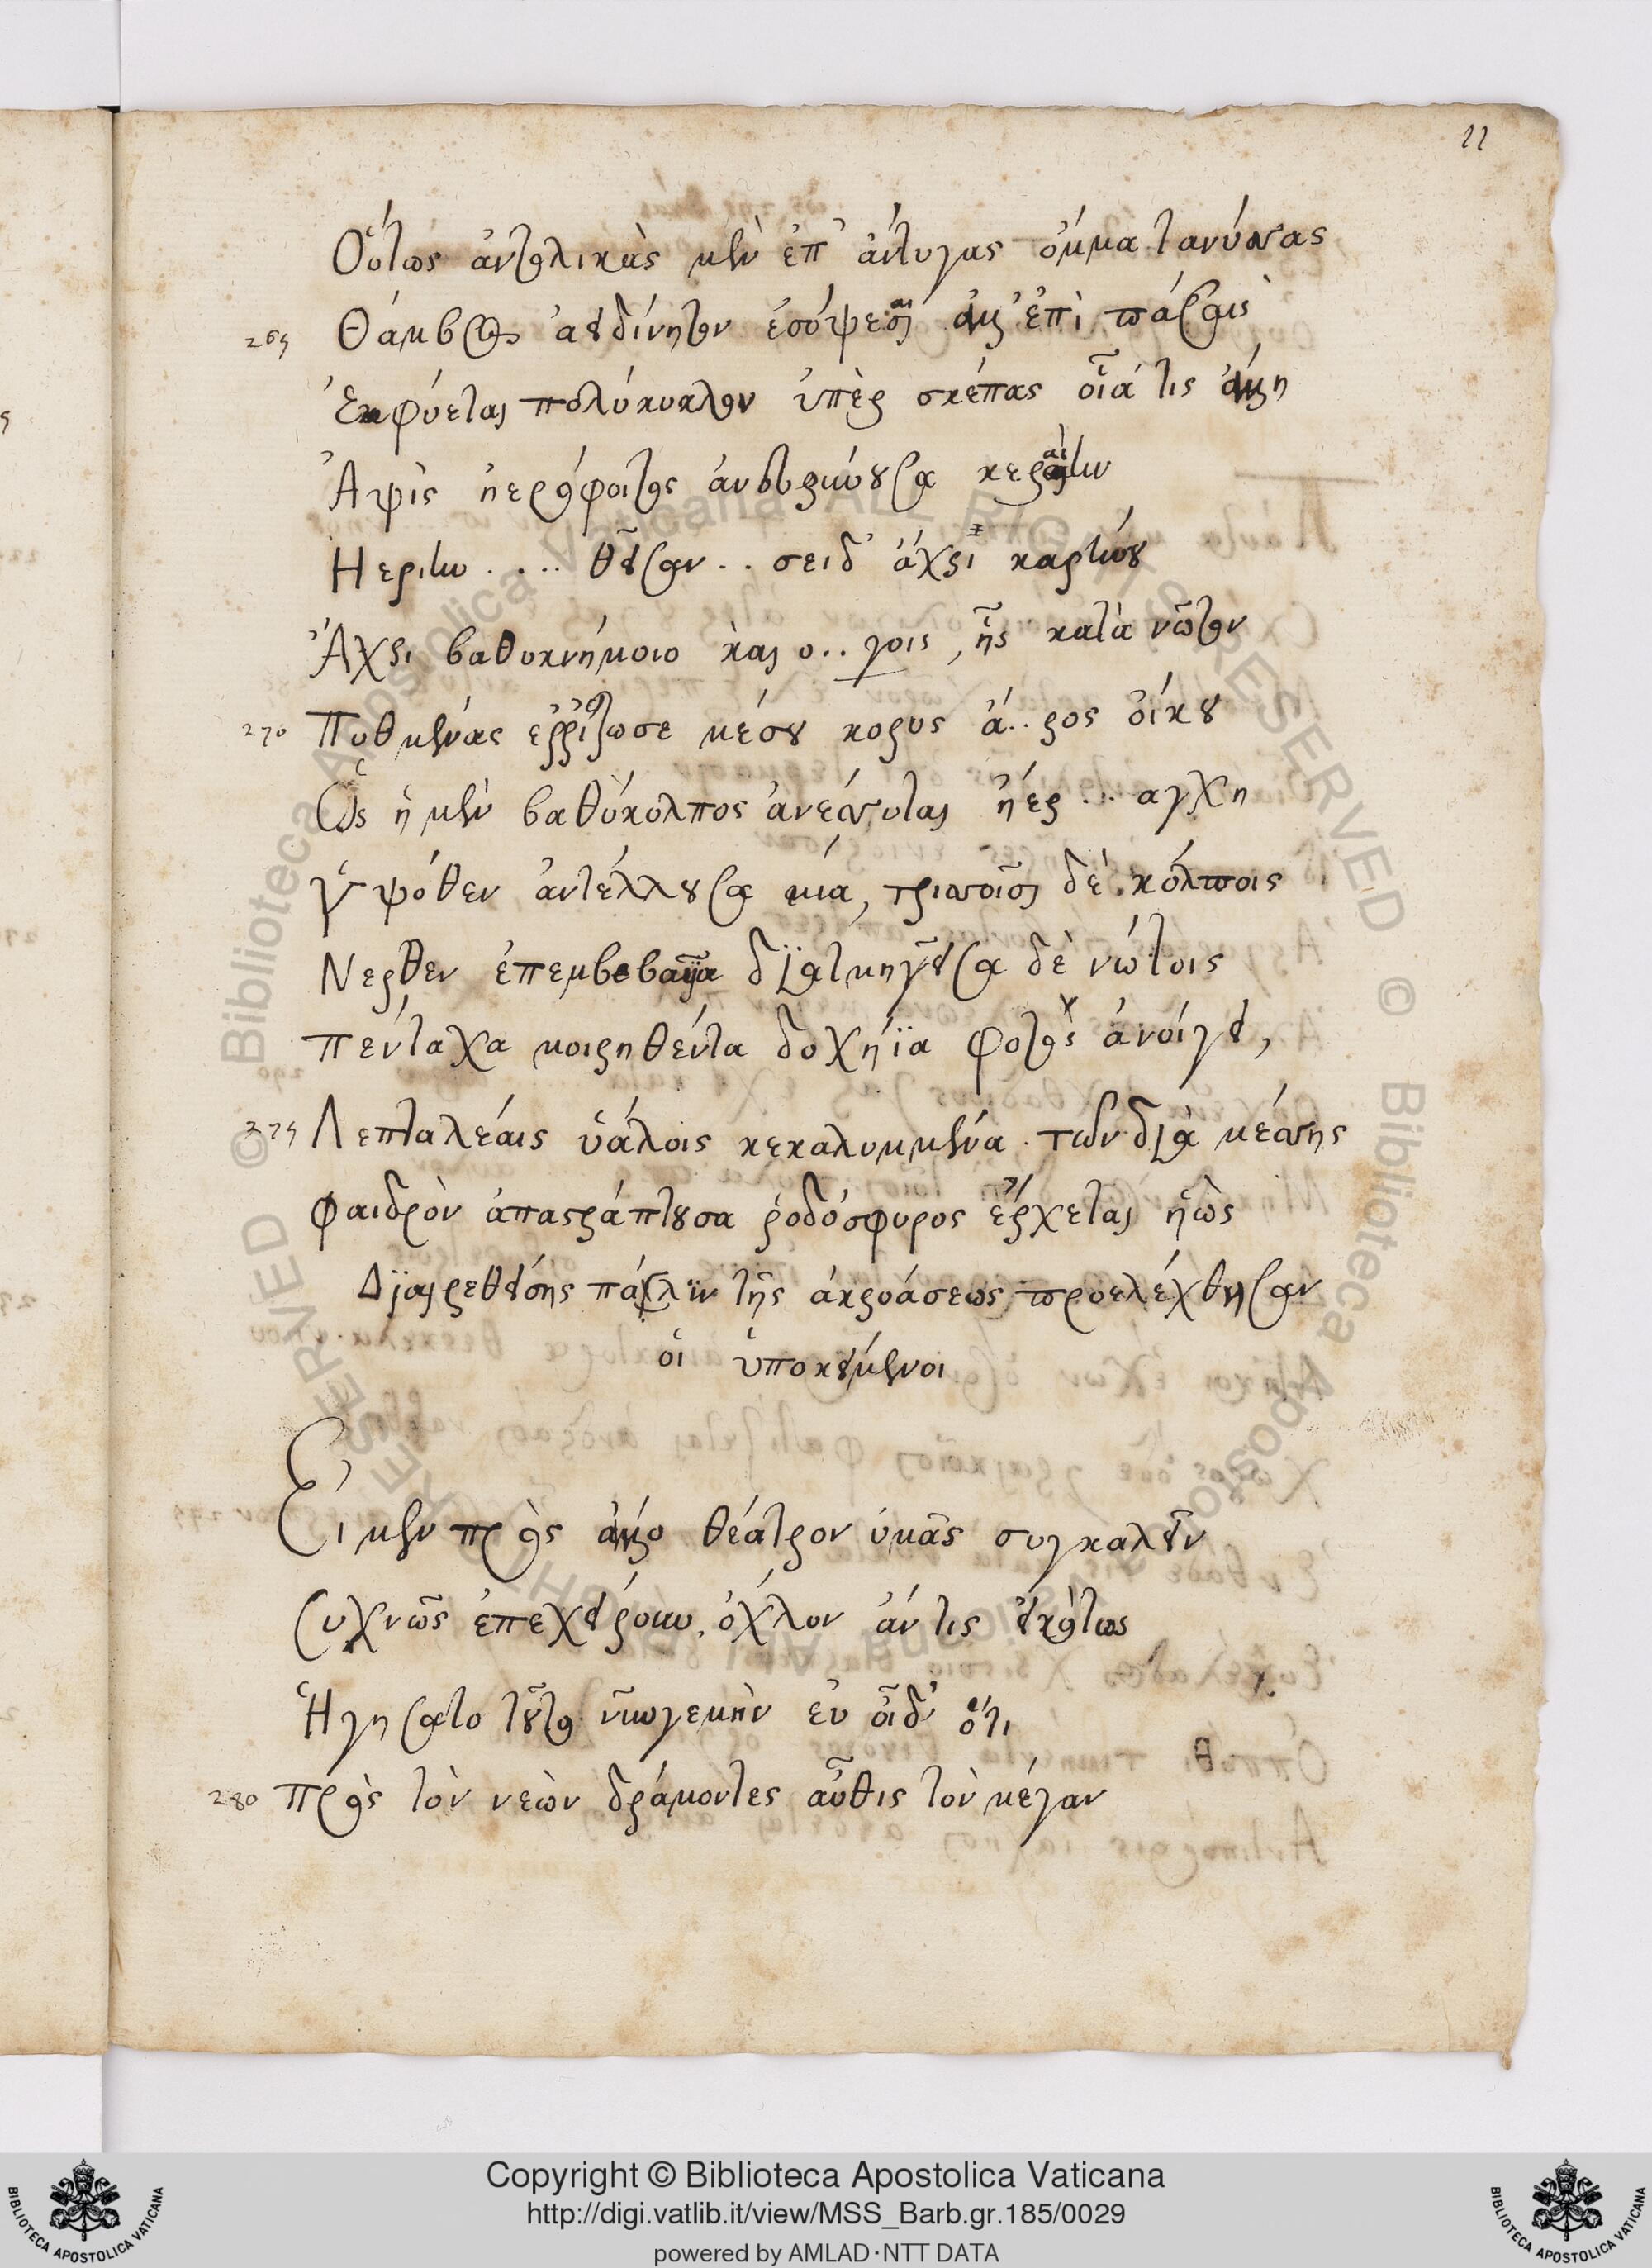 11
Οὕτως ἀντολικὰς μὲν ἐπ' ἄντυγας ὄμμα τανύσσας
265 Θάμβος ἀειδίνητον ἐσόψεαι ἀμφ' ἐπὶ πάσαις
Ἐκφύεται πολύκυκλον ὑπὲρ σκέπας οἷά τις ἄλλη
Ἀψὶς ἠερόφοιτος
Ἠερίην .... θοῦσαν .. σειδ' ἄχρι καρήνου
Ἄχρι βαθυκνήμοιο καὶ ο..γοις, ἧς κατὰ νῶτον
270 Πυθμένας ἐρρίζωσε μέσου κορυς ἀ..ρος οἴκου
Ὣς ἡ μὲν βαθύκολπος ἀνέσσυται ἠέρ... αγχη
Ὑψόθεν ἀντέλλουσα μία, τρισσοῖσι δὲ κόλποις
Νερθεν ἐπεμβεβαυῖα διατμηγοῦσα δὲ νώτοις
πένταχα μοιρηθέντα δοχήϊα φωτὸς ἀνοίγει,
275 Λεπταλέαις ὑάλοις κεκαλυμμένα. τῶν διὰ μέσσης
φαιδρὸν ἀπαστράπτουσα ῥοδόσφυρος ἔρχεται ἠὼς
Διαιρεθείσης πάλιν τῆς ἀκροάσεως προελέχθησαν
οἱ ὑποκείμενοι
Εἰ μὲν πρὸς ἄλλο θέατρον ὑμᾶς συγκαλεῖν
συχνῶς ἐπεχείρουν, ὄχλον ἄν τις εἰκότως
Ἡγήσατο τοῦτο νῦν γε μὴν εὖ οἶδ' ὅτι
280 πρὸς τὸν νεὼν δράμοντες αὖθις τὸν μέγαν
© Biblioteca Apostolica Vaticana ALL RIGHTS RESERVED © Biblioteca Apostolica Vaticana ALL RIGHTS RESERVED
Copyright © Biblioteca Apostolica Vaticana
http://digi.vatlib.it/view/MSS_Barb.gr.185/0029
powered by AMLAD·NTT DATA
BIBLIOTECA APOSTOLICA VATICANA
BIBLIOTECA APOSTOLICA VATICANA